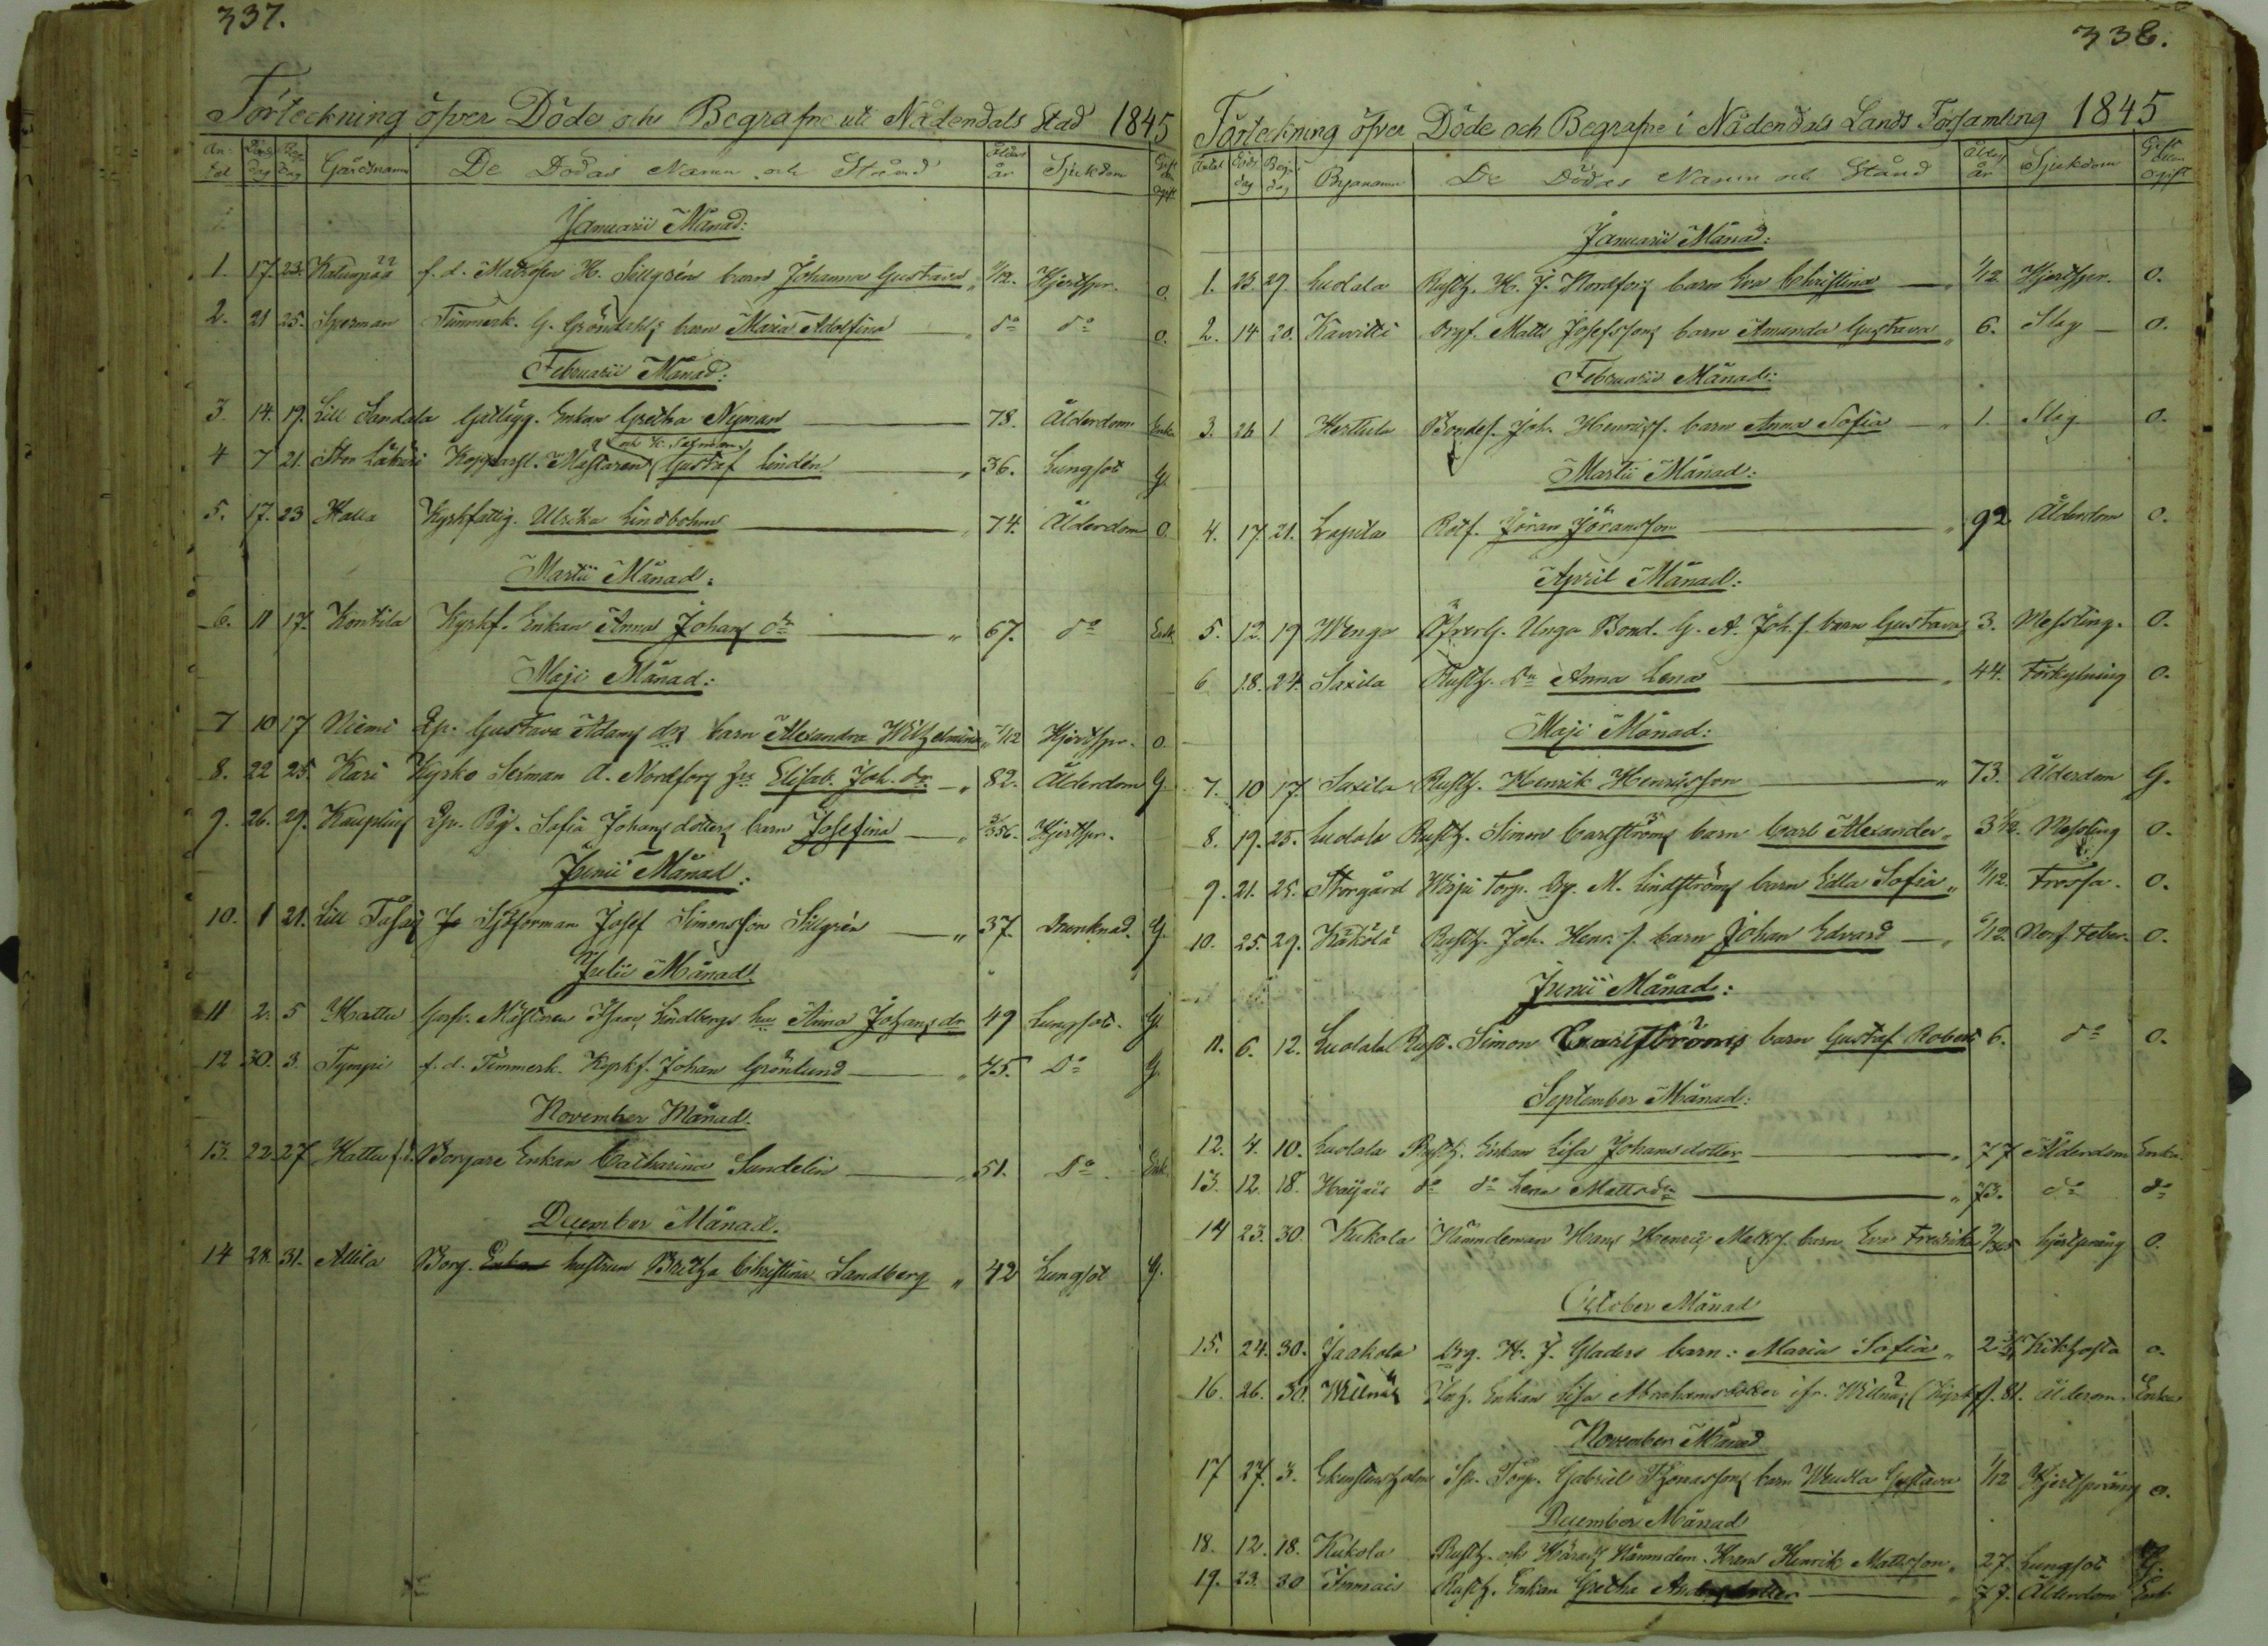 337.
Förteckning öfver Döde och Begrafne uti Nådendals Stad 1845
An-tal Döds dag Begr. dag Gårdsnamn De Dödas Namn och Stånd Ålder år Sjukdom Gift ell. Ogift
Januarii Månad:
1. 17. 23. Katinpää f. d. Matrosen H. Sillgréns barn Johanna Gustava /12. Hjertspr. o.
2. 21 25. Syerman Timmerk. G. Gröndahls barn Maria Adolfina do do o.
Februarii Månad:
3. 14. 19. Lill Sandela Enkan Gretha Nyman 78. Ålderdom Enka
4 7 21. Stor Kopparsl. Mästaren Gustaf Lindén 36. Lungsot G.
5. 17. 23 Halla Kyrkfattig. Ulrika Lindbohm 74. Ålderdom O.
Martii Månad:
6. 11 17. Kontila Kyrkf. Enkan Anna Johans dr 67. do Enk.
Maji Månad:
7 10 17 Niemi Gustava Adams drs barn Alexandra Wilhelmina /12 Hjertspr. o.
8. 22 25. Kari Kyrko A. Nordfors Elisab. Joh. dr. 82. Ålderdom G.
9. 26. 29. Kauplius Pig. Sofia Johans dotters barn Josefina Hjertspr.
Junii Månad:
10. 1 21. Lill Josef Simonsson Sillgrén 37. Drunknad. G.
Julii Månad.
11 2. 5 Hattu Mästaren Isaac Lindbergs hu Anna Johans dr 49 Lungsot. G.
12 30. 3. Tympi f. d. Timmerk. Kyrkf. Johan Grönlund 75. Do G.
November Månad.
13. 22. 27 Hattu f.d. Borgare Enkan Catharina Sundelin 51. Do Enk.
December Månad.
14 28. 31. Allila Borg. Enkan hustrun Bretha Christina Sandberg 42 Lungsot G.
338.
Förteckning öfver Döde och Begrafne i Nådendals Lands Församling 1845
Antal Döds dag Begr. dag Byanamn De Dödas Namn och Stånd Ålder år Sjukdom Gift eller ogift
Januarii Månad:
1. 23. 29. Luolala Rusth. H. J. Nordfors barn Eva Christina 1/12 Hjertspr. O.
2. 14 20. Kawitti Matts Josefssons barn Amanda Gustava 6. Slag O.
Februarii Månad:
3. 26 1 Herttula Bondes. Joh. Henriss. barn Anna Sofia 1. Slag O.
Martii Månad:
4. 17 21. Lapila Rotf. Jöran Jöransson 92 Ålderdom O.
April Månad:
5. 12. 19 Wenga Unga Bond. G. A. Joh. s. barn Gustava 3. Messling. O.
6 18. 24. Saxila Rusth. Dr Anna Lena 44. Förkylning O.
Maji Månad:
7. 10 17. Saxila Rusth. Henrik Henricsson 73. Ålderdom G.
8. 19. 25. Luolala Rusth. Simon Carlströms barn Carl Alexander 3 /12. Messling O.
9. 21. 25. Storgård Torp. M. Lindströms barn Edla Sofia /12. Frossa. O.
10. 25. 29. Käkölä Rusth. Joh. Henr. s. barn Johan Edvard /12. Nerf. Feber. O.
Junii Månad:
11. 6. 12. Luolala Rust. Simon Carlströms barn Gustaf Robert 6. do O.
September Månad:
12. 4. 10. Luolala Rusth. Enkan Lisa Johansdotter 77 Ålderdom Enka.
13. 12. 18. Haijais do do Lena Mattsdr 73. do do
14 23. 30. Kukola Nämndeman Hans Henric Matts s. barn Eva Fredrika /365 hjertsprång O.
October Månad
15. 24. 30. Jaakola H. J. Gladers barn: Maria Sofia 2 Kikhosta o.
16. 26. 30. Wilnäs Enkan Lisa Abrahamsdotter ifr. Wilnäs (Kyrkf). 81. Ålderdom. Enka
November Månad
17 27. 3. Ekenstensholm Torp. Gabriel Thomassons barn Wendla Gustava 1/12 Hjertsprång o.
December Månad
18. 12. 18. Kukola Rusth. och Härads Nämndem. Hans Henrik Mattsson 27. Lungsot G.
19. 23. 30 Immais Rusth. Enkan Gretha Andersdotter 77. Ålderdom Enk.